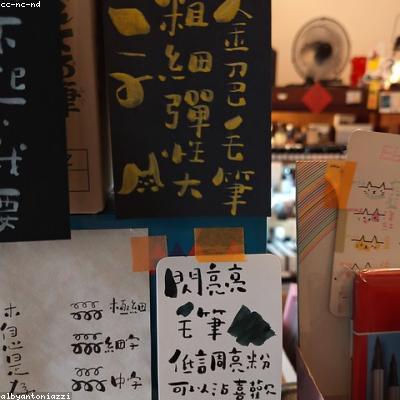 cc-nc-nd
不起,我要
筆
金色毛筆
粗細彈性大
極細
細字
中字
閃亮亮
毛筆
低調亮粉
可以沾喜歡
albyantoniazzi